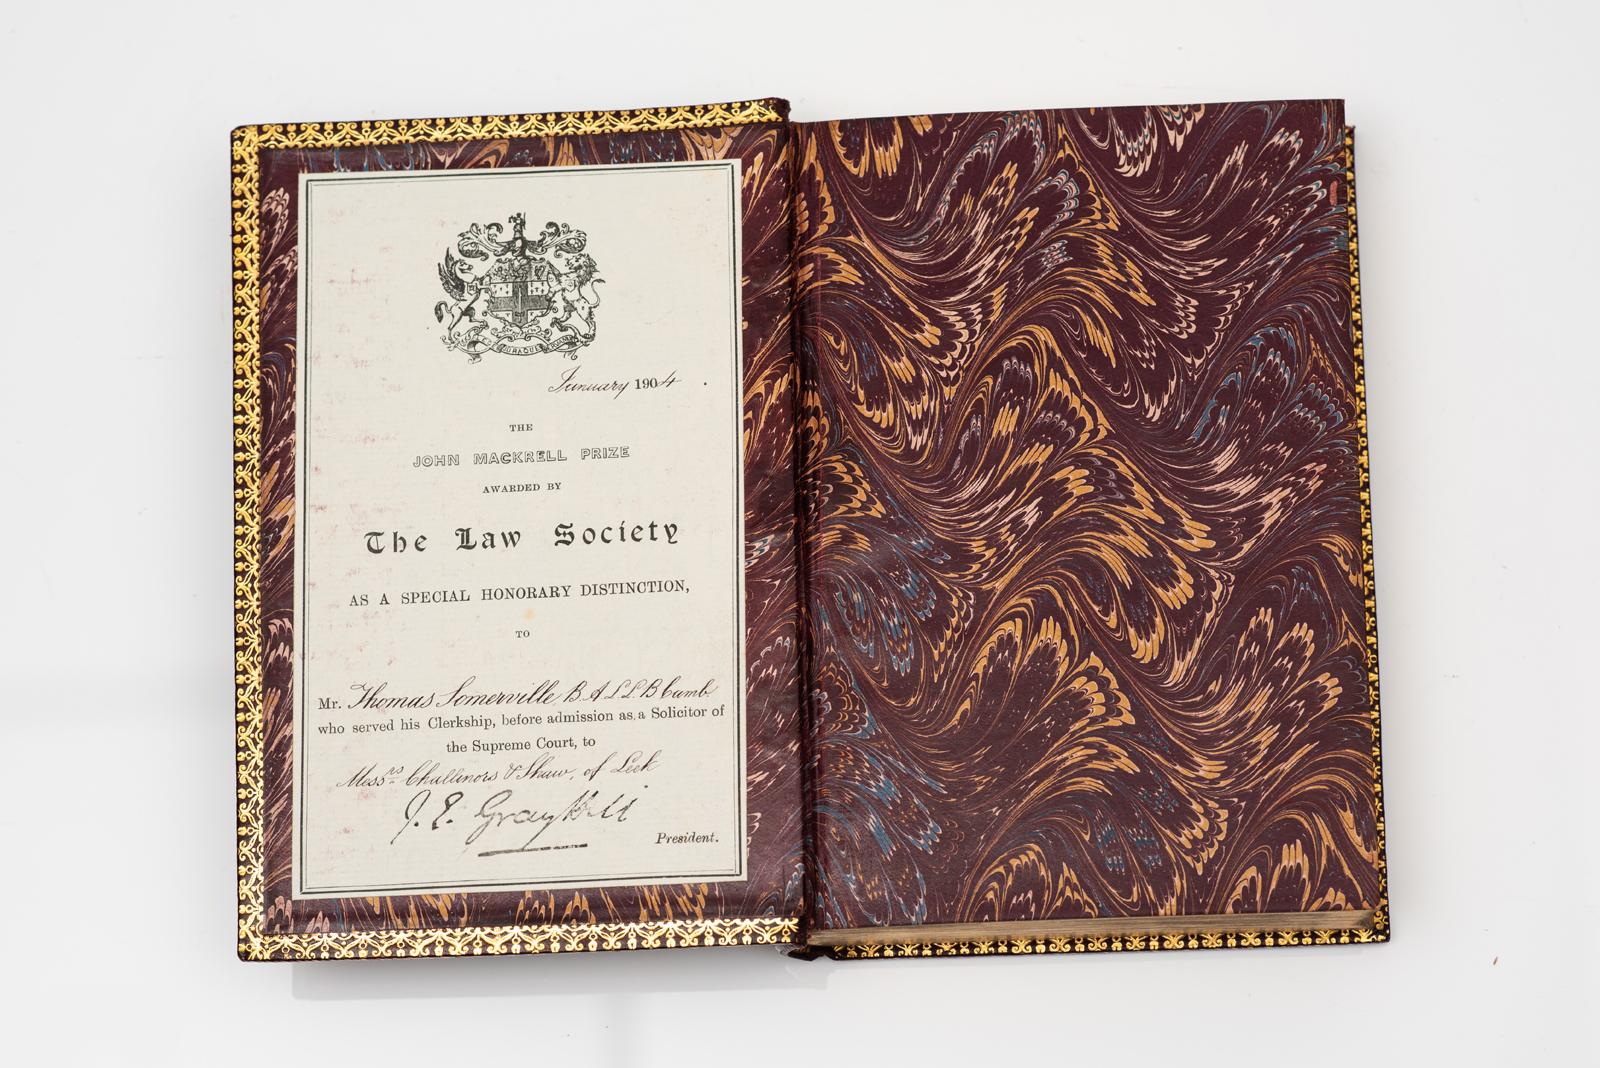 January 1904
THE
JOHN MACKRELL PRIZE
AWARDED BY
The Law Society
AS A SPECIAL HONORARY DISTINCTION,
TO
Mr. Thomas Somerville B A L L B Camb
who served his Clerkship, before admission as a Solicitor of
the Supreme Court, to
Messrs Challinors & Shaw, of Leek
J. E. Gray Hill
President.